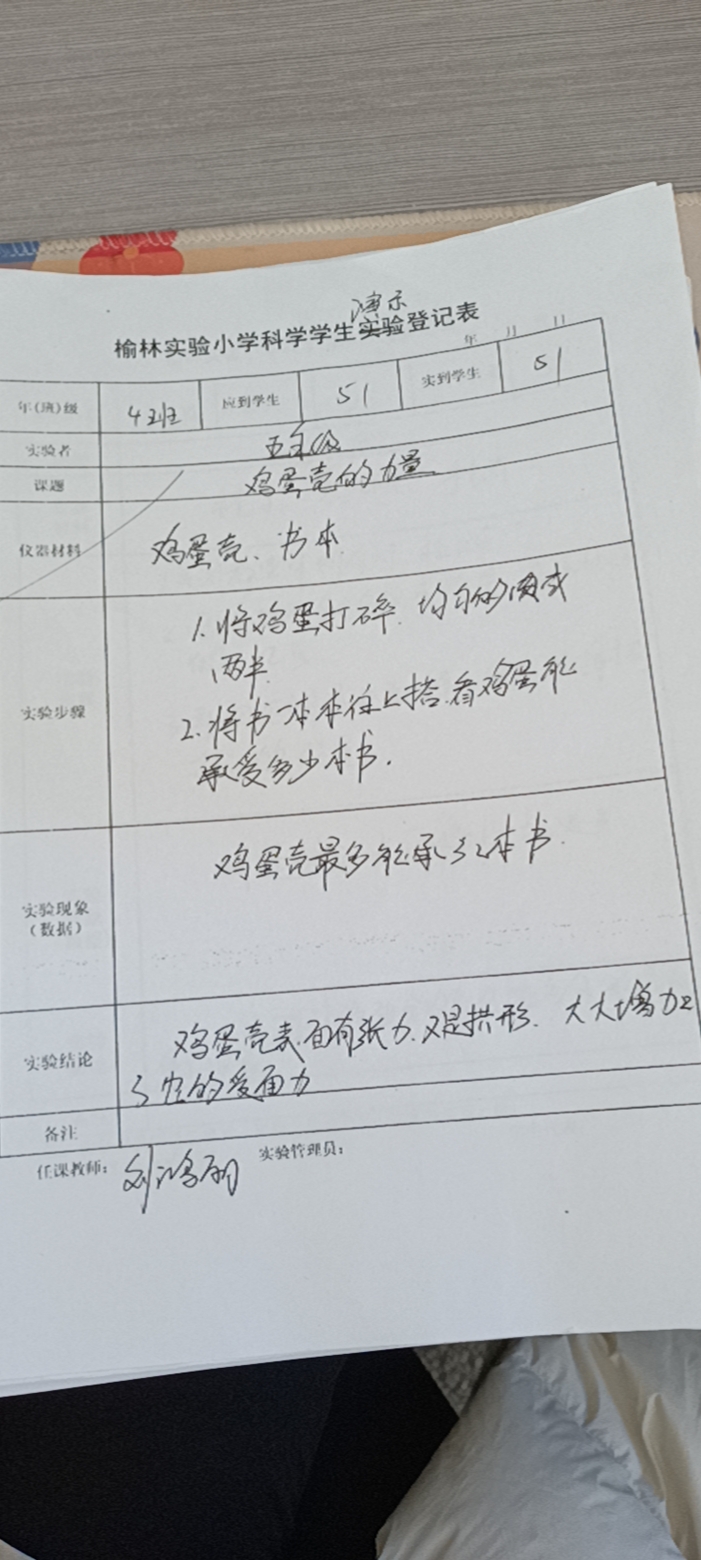 演示
榆林实验小学科学学生实验登记表
年 月 日
年(班)级 4班 应到学生 51 实到学生 51
实验者 五年级
课题 鸡蛋壳的力量
仪器材料 鸡蛋壳、书本
实验步骤
1.将鸡蛋打碎.均匀的成
两半
2.将书一本本往上搭.看鸡蛋能
承受多少本书.
实验现象
(数据)
鸡蛋壳最多能承了2本书.
实验结论
鸡蛋壳表面有张力.又是拱形.大大增加
了它的受面力
备注
任课教师: 实验管理员: